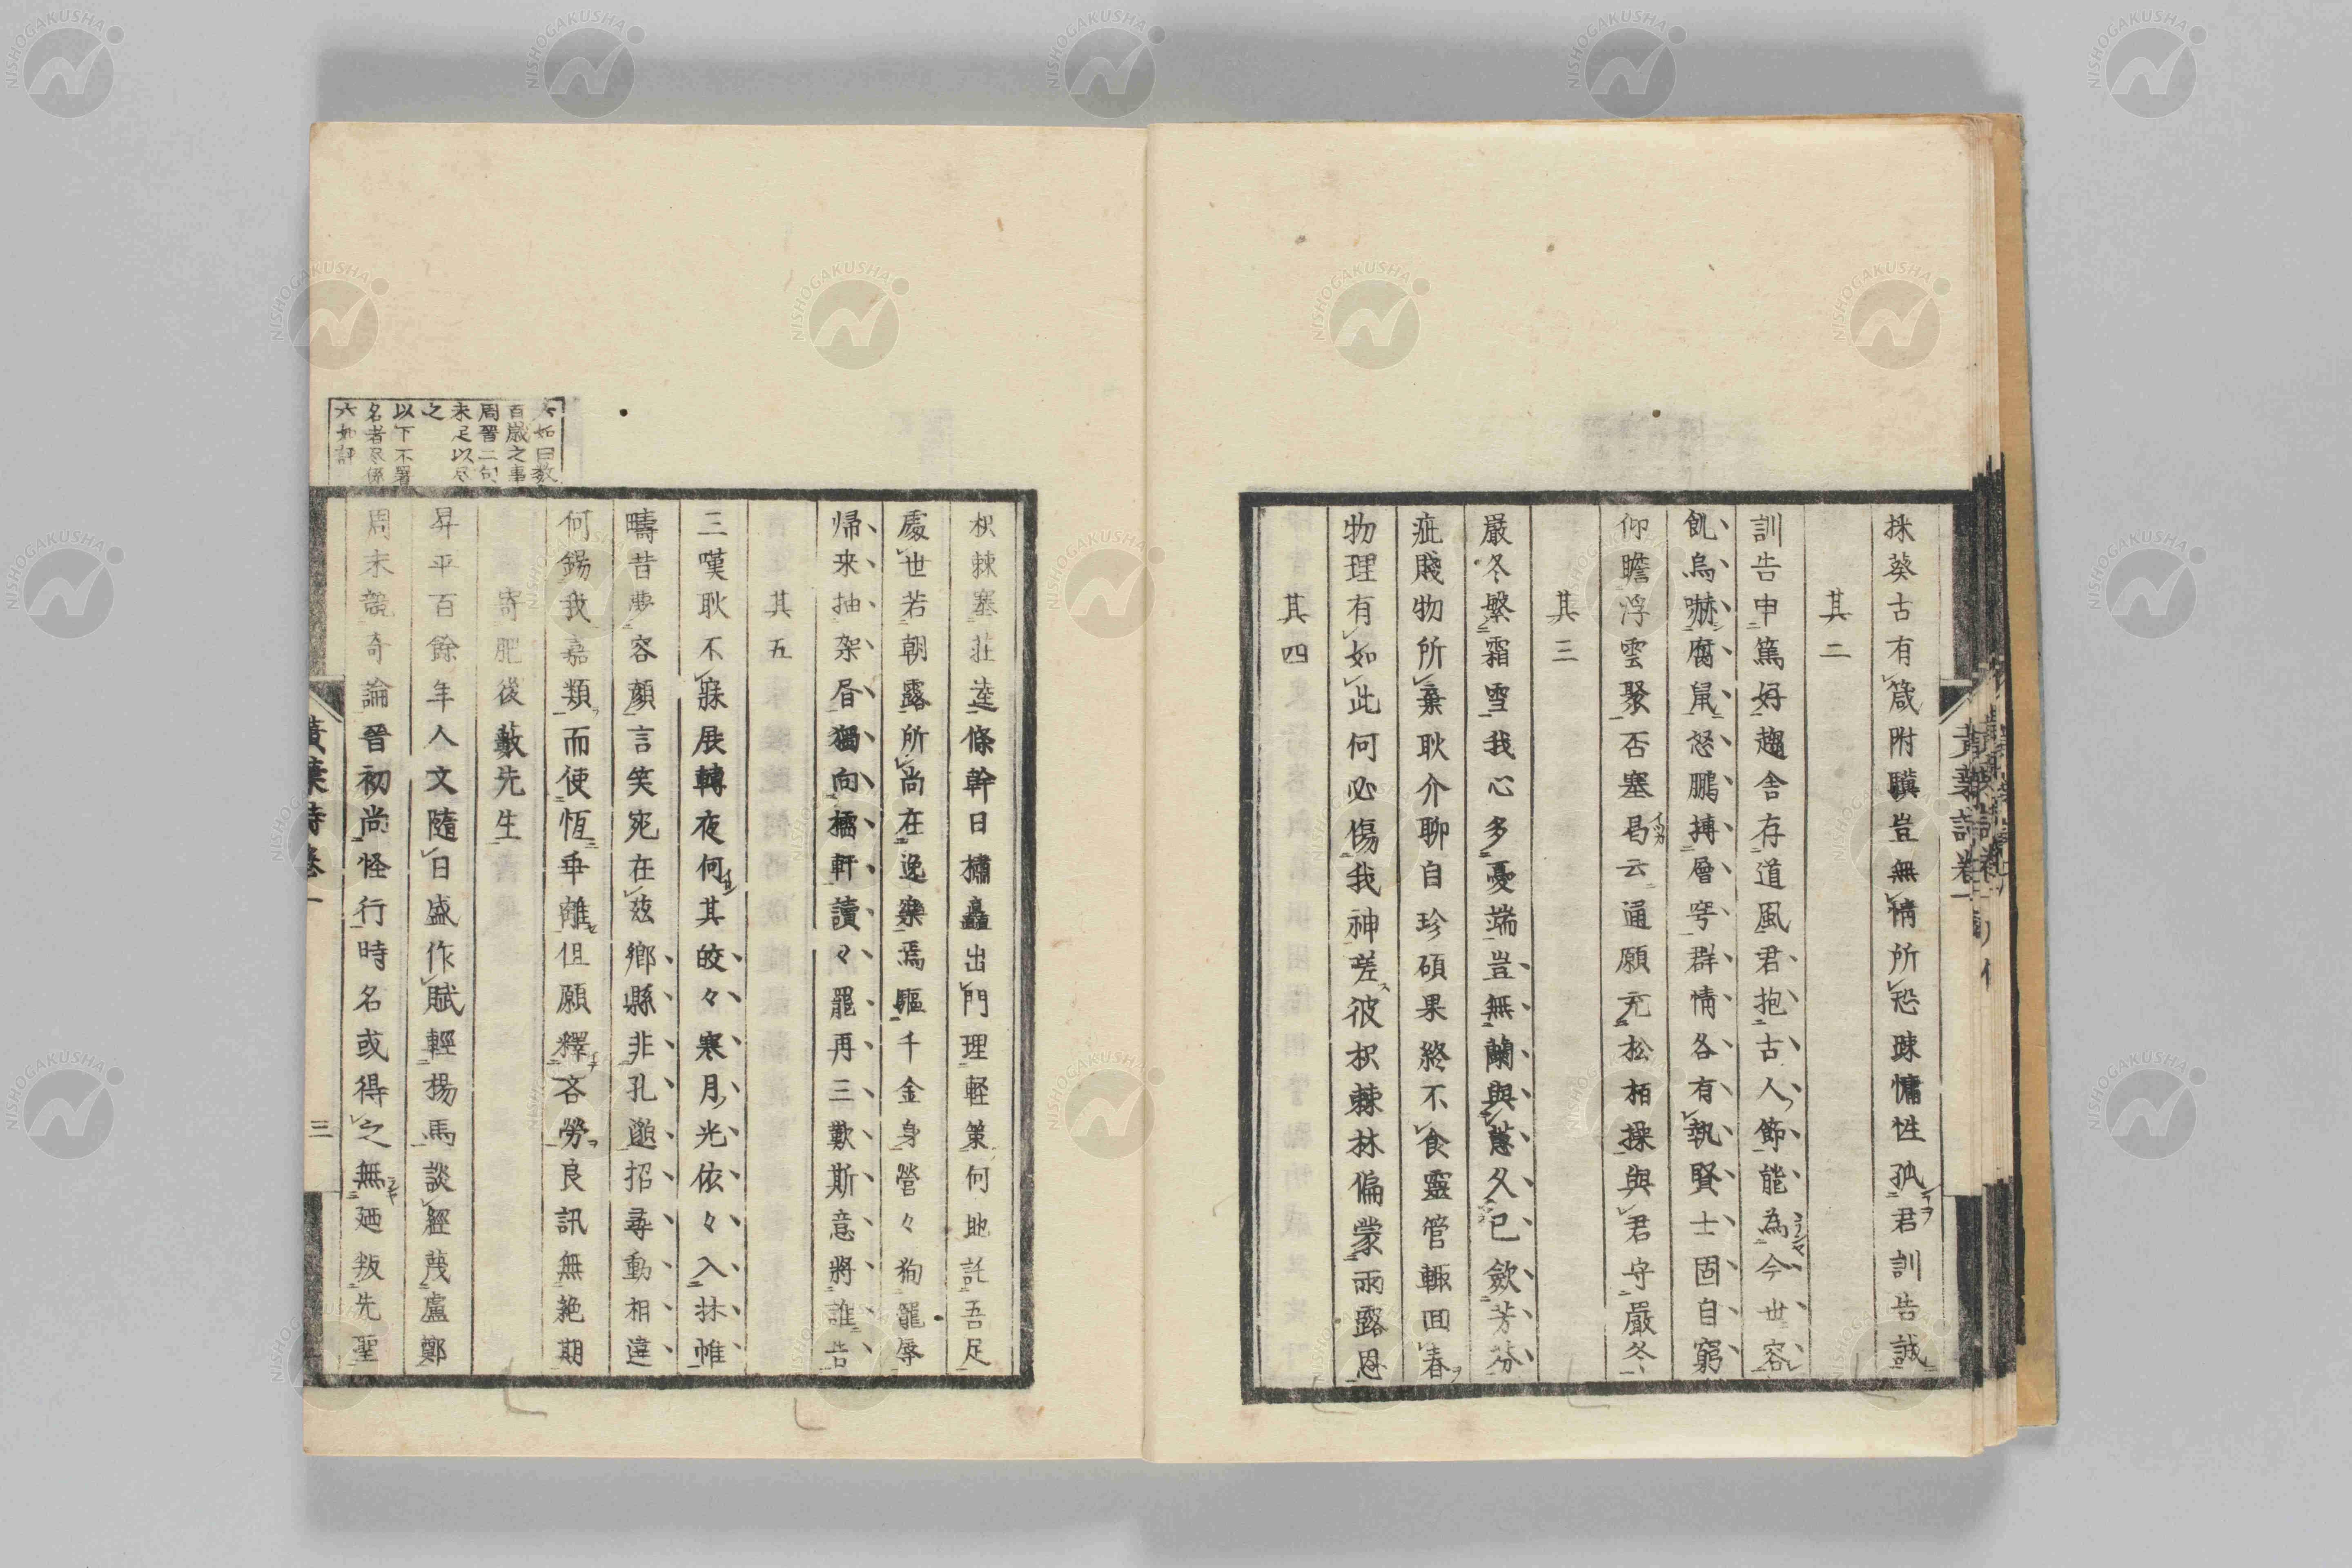 採葵古有箴附驥豈無情所恐踈慵性孤君訓告誠
其二
訓告申篤好趨舎存道風君抱古人節能為今世容
飢烏嚇腐鼠怒鵬搏層穹群情各有執賢士固自窮
仰瞻浮雲聚否塞曷云通願充松柏操與君守嚴冬
其三
嚴冬繁霜雪我心多憂端豈無蘭與蕙久已歛芳芬
疵賤物所棄耿介聊自珍碩果終不食靈管輙回春
物理有如此何必傷我神嗟彼枳棘林偏蒙雨露恩
其四
枳棘塞荘逵條幹日橚矗出門理軽策何地託吾足
處世若朝露所尚在逸樂焉驅千金身營々狥寵辱
帰来抽架㞐獨向櫺軒讀々罷再三歎斯意將誰告
其五
三嘆耿不寐展轉夜何其皎々寒月光依々入牀帷
疇昔夢容顔言笑宛在玆鄉縣非孔邈招尋動相違
何錫我嘉類而使恆乖離但願釋吝勞良訊無絶期
寄肥後藪先生
昇平百餘年人文隨日盛作賦輕揚馬談經蔑盧鄭
周末競奇論晉初尚怪行時名或得之無廼叛先聖
六如曰数
百歳之事
周晉二句
未足以尽
之
以下不署
名者尽係
六如評
黄葉詩巻一
三
黄葉詩巻一